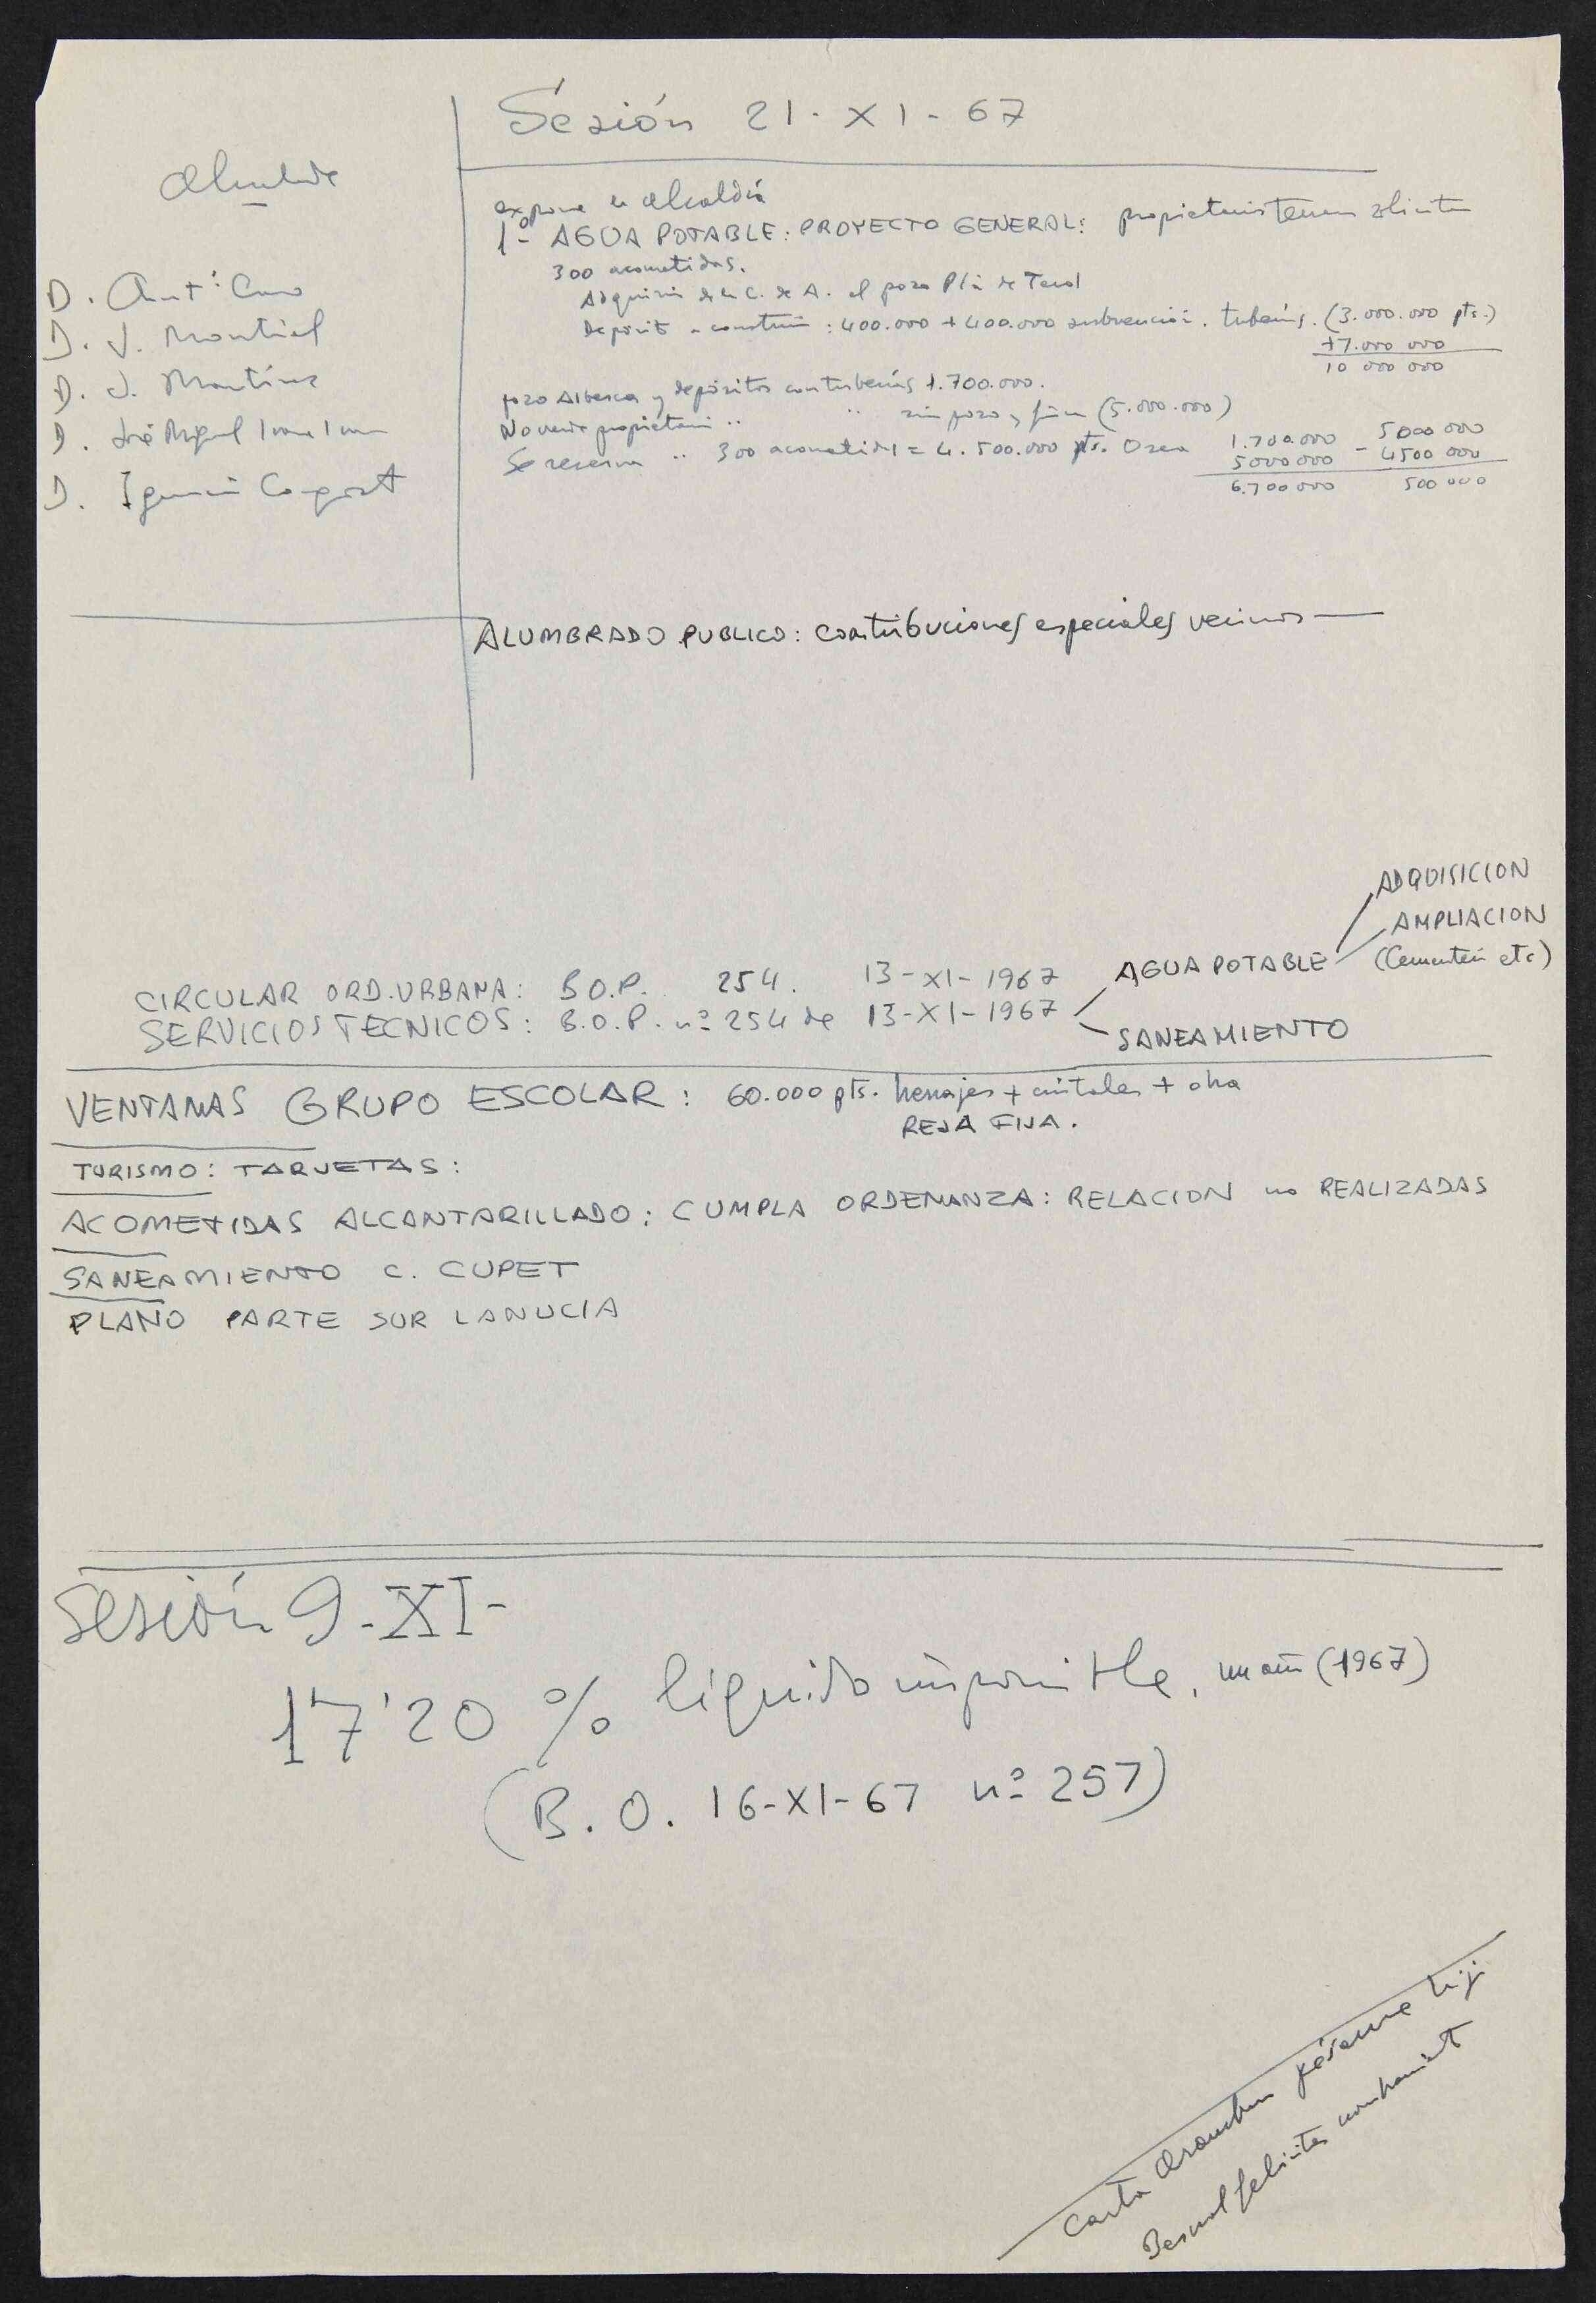 Sesión 21-XI-67
Alcalde
D. Antº Cano
D. J. Montiel
D. J. Martínez
D. José Miguel
D. Ignacio
expone la alcaldía
1º- AGUA POTABLE: PROYECTO GENERAL: propietarios
300 acometidas.
Adquirir de la C. de A. el pozo Plá de Terol
Depósito a construir: 400.000 + 400.000 subvención. tuberías. (3.000.000 pts.)
+7.000 000
10 000 000
pozo Alberca y depósitos con tuberías 1.700.000.
No vende propietario .. .. sin pozo y finca (5.000.000)
Se reserva .. 300 acometidas = 4.500.000 pts. O sea
1.700.000
5000000
6.700000
- 5000 000
4500 000
500 000
ALUMBRADO PUBLICO: contribuciones especiales vecinos —
CIRCULAR ORD. URBANA: B.O.P. 254. 13-XI-1967
SERVICIOS TECNICOS: B.O.P. nº 254 de 13-XI-1967
AGUA POTABLE
ADQUISICION
AMPLIACION
(Cementerio etc)
SANEAMIENTO
VENTANAS GRUPO ESCOLAR: 60.000 pts. herrajes + cristales + obra
REJA FIJA.
TURISMO: TARJETAS:
ACOMETIDAS ALCANTARILLADO: CUMPLA ORDENANZA: RELACION no REALIZADAS
SANEAMIENTO C. CUPET
PLANO PARTE SUR LANUCIA
Sesión 9-XI-
17'20 % líquido imponible, un año (1967)
(B.O. 16-XI-67 nº 257)
Carta pésame hijo
felicitar nombramiento